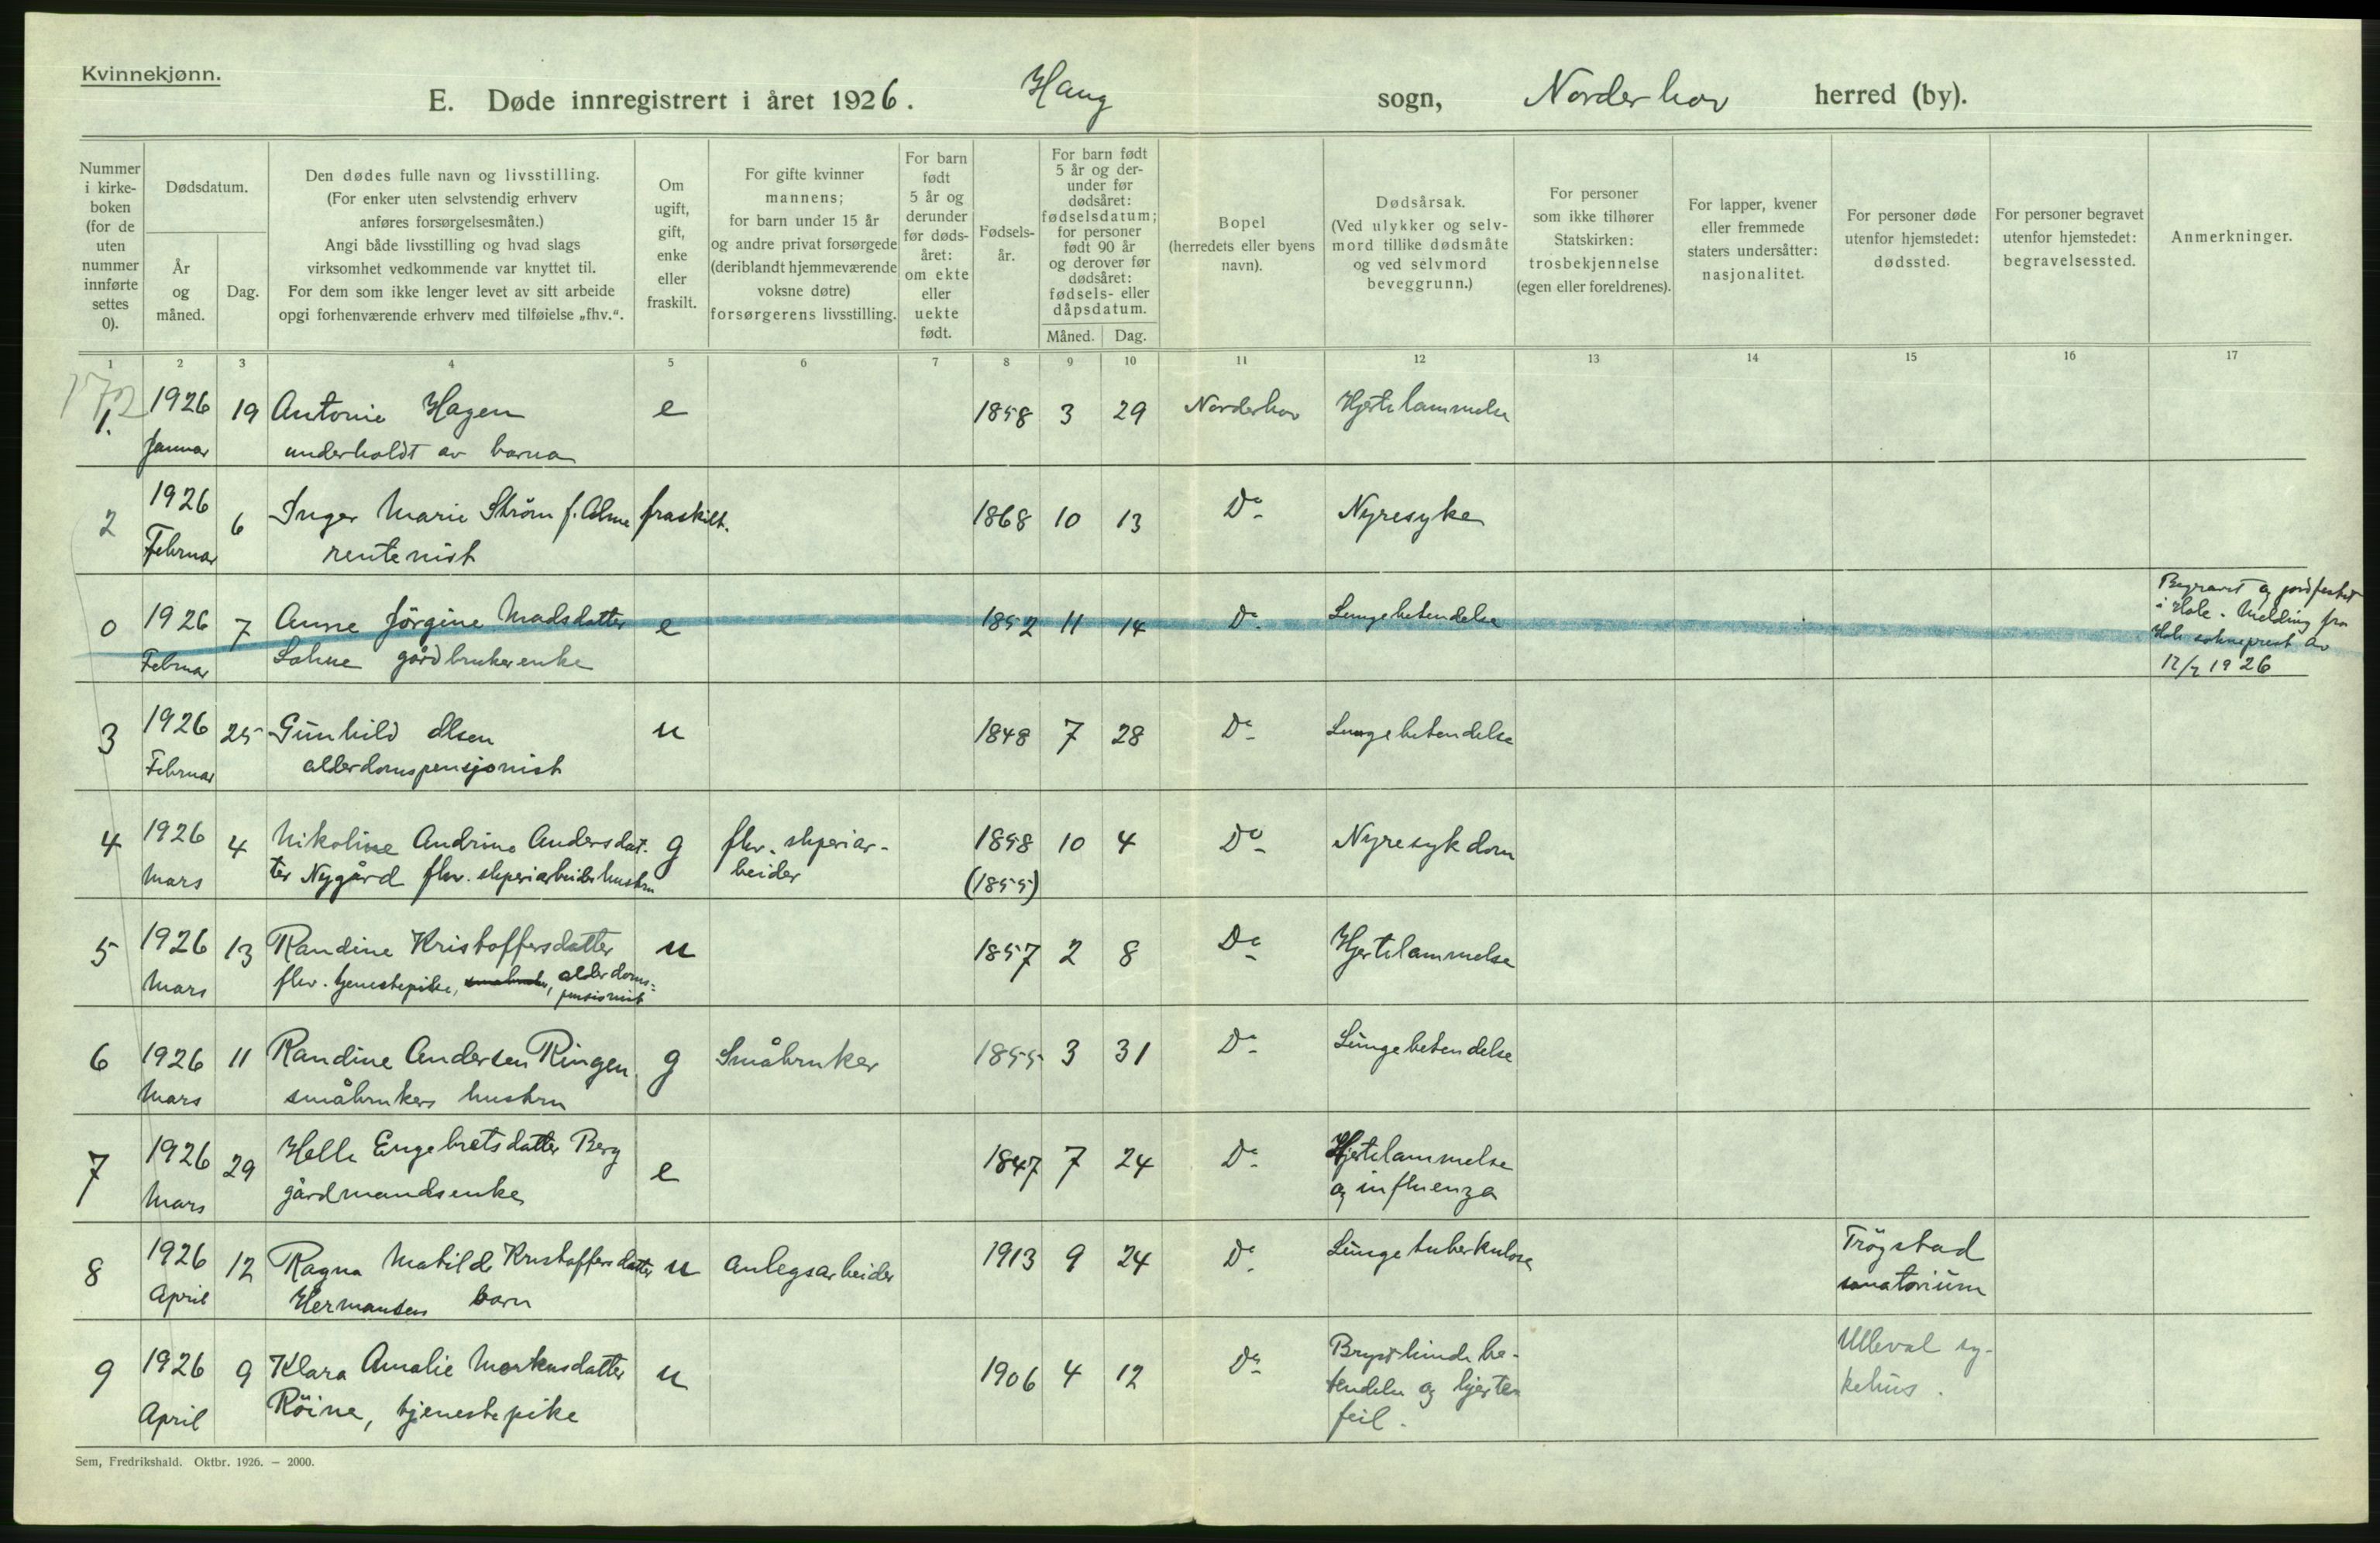 Kvinnekjønn.
E. Døde innregistrert i året 1926. Haug sogn, Norderhov herred (by).
Nummer
i kirke-
boken
(for de
uten
nummer
innførte
settes
0).
Dødsdatum.
År
og
måned.
Dag.
Den dødes fulle navn og livsstilling.
(For enker uten selvstendig erhverv
anføres forsørgelsesmåten.)
Angi både livsstilling og hvad slags
virksomhet vedkommende var knyttet til.
For dem som ikke lenger levet av sitt arbeide
opgi forhenværende erhverv med tilføielse „fhv.“.
Om
ugift,
gift,
enke
eller
fraskilt.
For gifte kvinner
mannens;
for barn under 15 år
og andre privat forsørgede
(deriblandt hjemmeværende
voksne døtre)
forsørgerens livsstilling.
For barn
født
5 år og
derunder
før døds-
året:
om ekte
eller
uekte
født.
Fødsels-
år.
For barn født
5 år og der-
under før
dødsåret:
fødselsdatum;
for personer
født 90 år
og derover før
dødsåret:
fødsels- eller
dåpsdatum.
Måned. Dag.
Bopel
(herredets eller byens
navn).
Dødsårsak.
(Ved ulykker og selv-
mord tillike dødsmåte
og ved selvmord
beveggrunn.)
For personer
som ikke tilhører
Statskirken:
trosbekjennelse
(egen eller foreldrenes).
For lapper, kvener
eller fremmede
staters undersåtter:
nasjonalitet.
For personer døde
utenfor hjemstedet:
dødssted.
For personer begravet
utenfor hjemstedet:
begravelsessted.
Anmerkninger.
1 2 3 4 5 6 7 8 9 10 11 12 13 14 15 16 17
172
1. 1926 19 Antonie Hagen e 1858 3 29 Norderhov Hjertelammelse
Januar underholdt av barna
2 1926 6 Inger Marie Strøm f. Alme fraskilt. 1868 10 13 Do Nyresyke
Februar rentenist
0 1926 7 Anne Jörgine Madsdatter e 1852 11 14 Do Lungebetendelse Begravet og jordfestet
Februar gårdbrukerenke i Hole. Melding fra
Hole sokneprest av
1926
3 1926 25 Gunhild Olsen u 1848 7 28 Do Lungebetendelse
Februar alderdomspensjonist
4 1926 4 Nikoline Andrine Andersdat- g fhv. sliperiar- 1858 10 4 Do Nyresykdom
Mars ter Nygård fhv. sliperiarbeiderhustru beider (1855)
5 1926 13 Randine Kristoffersdatter u 1857 2 8 Do Hjertelammelse
Mars fhv. tjenestepike, alderdoms-
pensionist
6 1926 11 Randine Andersen Ringen g Småbruker 1855 3 31 Do Lungebetendelse
Mars småbrukers hustru
7 1926 29 Helle Engebretsdatter Berg e 1847 7 24 Do Hjertelammelse
Mars gårdmandsenke og influenza
8 1926 12 Ragna Matilde Kristoffersdatter u anlegsarbeider 1913 9 24 Do Lungetuberkulose Trögstad
April Hermansen barn sanatorium
9 1926 9 Klara Amalie Markusdatter u 1906 4 12 Do Brysthinde be- Ulleval sy-
April Röine, tjenestepike tendelse og hjerte- kehus.
feil.
Sem, Fredrikshald. Oktbr. 1926. — 2000.